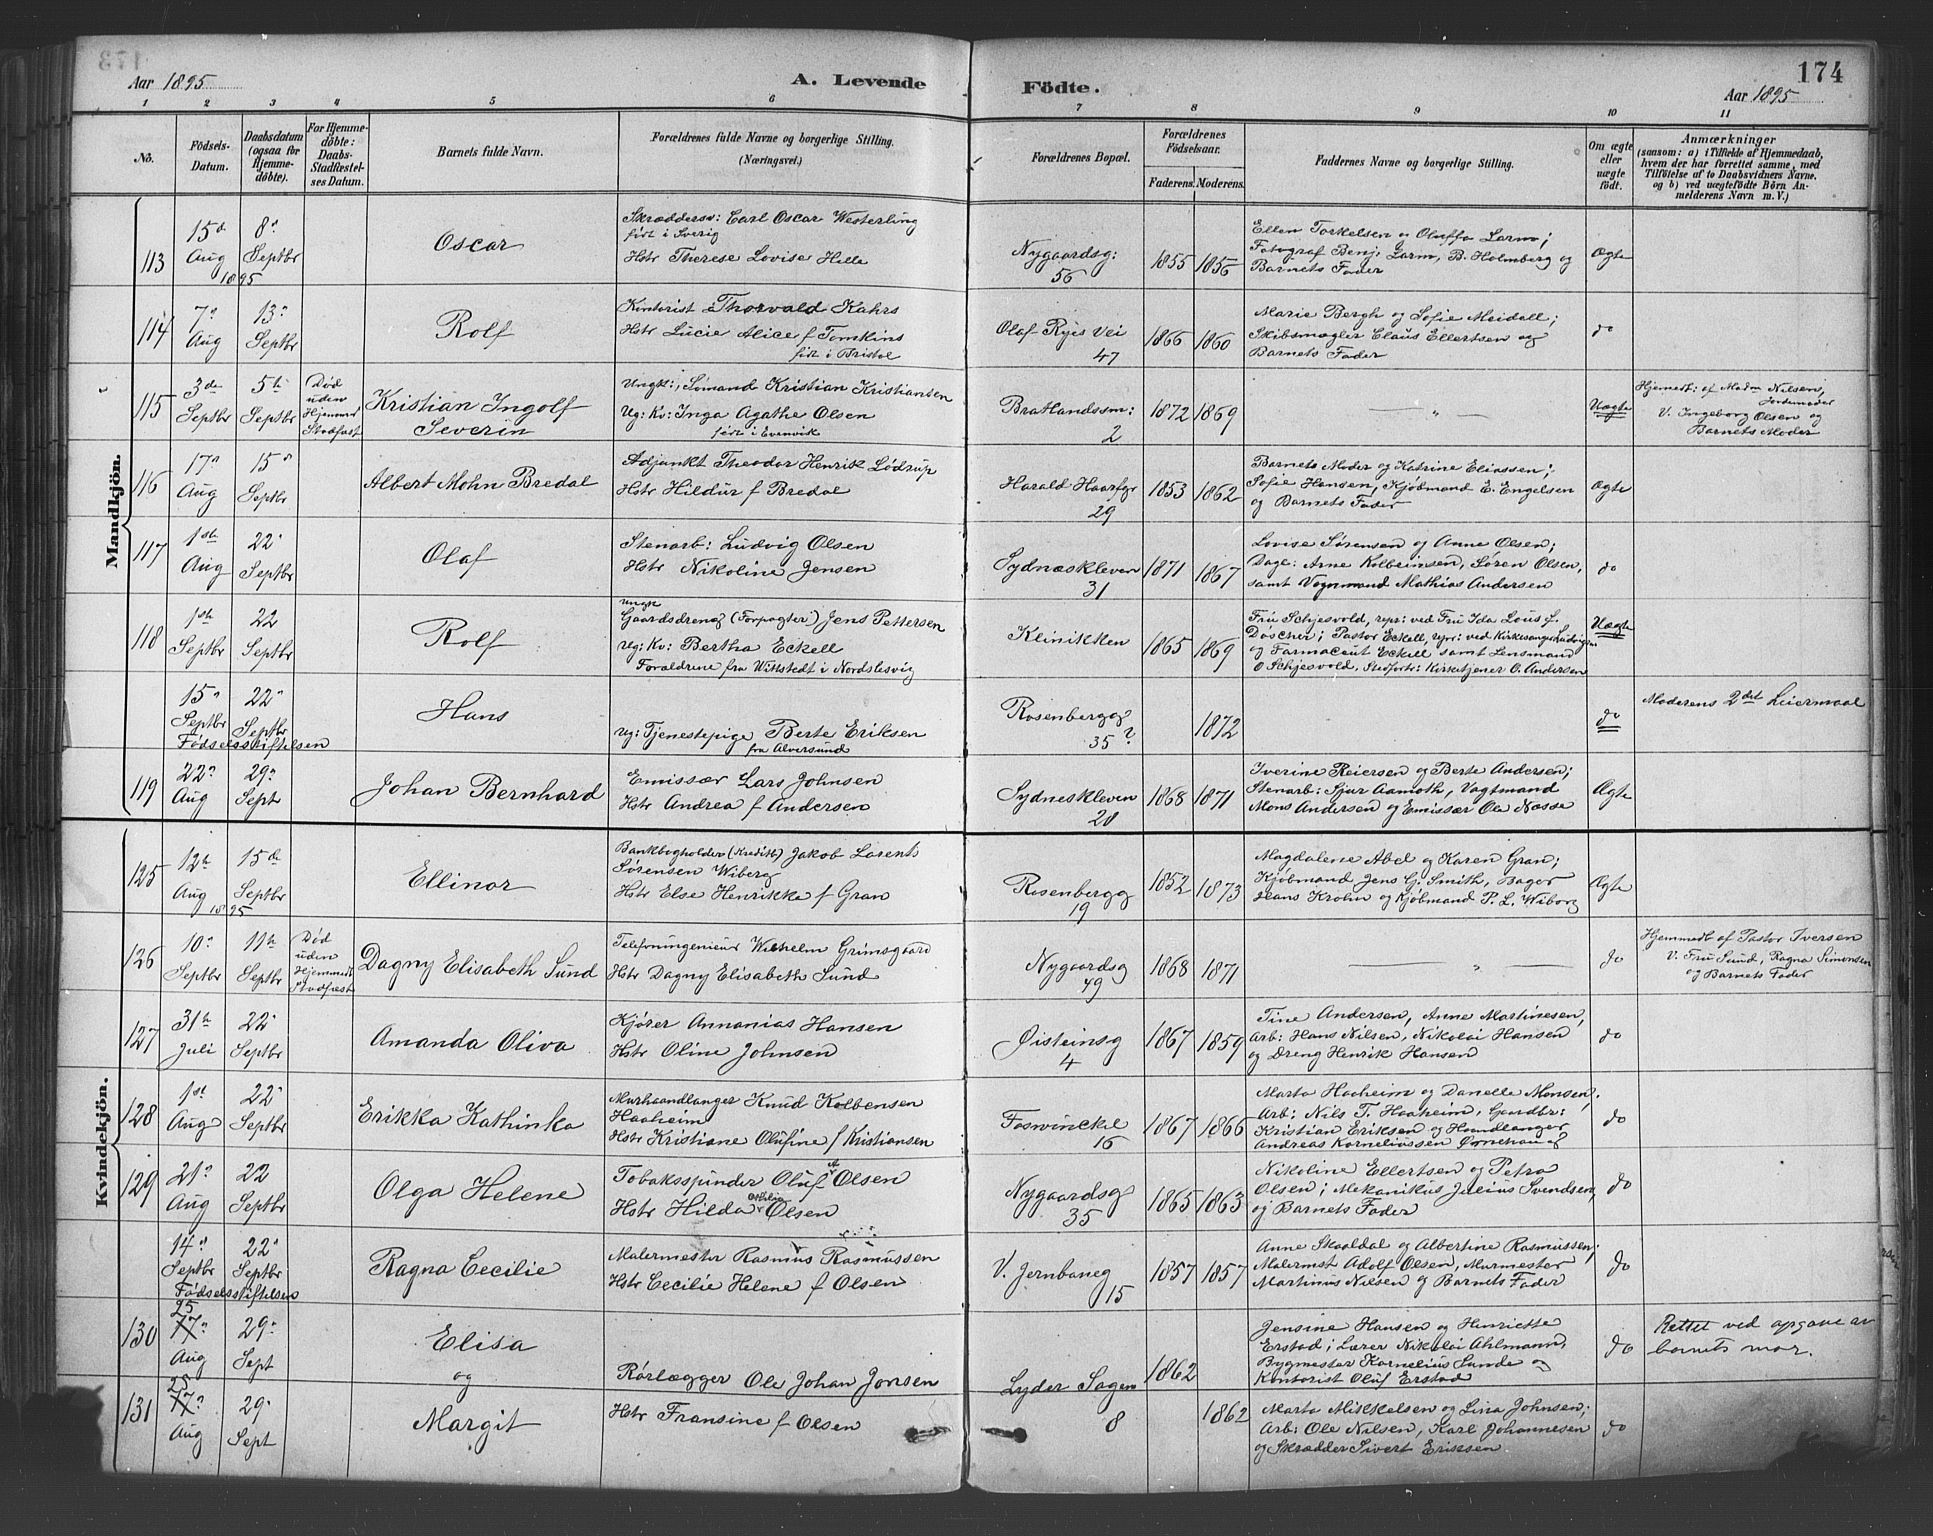 Aar 1895
A. Levende
Födte.
Aar 1895
174
1 2 3 4 5 6 7 8 9 10 11
No.
Födsels-
Datum.
Daabsdatum
(ogsaa for
Hjemme-
döbte).
For Hjemme-
döbte:
Daabs-
Stadfæstel-
ses Datum.
Barnets fulde Navn.
Forældrenes fulde Navne og borgerlige Stilling.
(Næringsvei.)
Forældrenes Bopæl.
Forældrenes
Födselsaar.
Faderens. Moderens.
Faddernes Navne og borgerlige Stilling.
Om ægte
eller
uægte
födt.
Anmærkninger
(saasom: a) i Tilfælde af Hjemmedaab,
hvem der har forrettet samme, med
Tilföielse af to Daabsvidners Navne,
og b) ved uægtefödte Börn An-
melderens Navn m. V.)
Mandkjön.
113
15d
Aug
1895
8d
Septbr
Oscar
Skræddersv: Carl Oscar Westerling
født i Sverig
Hstr Therese Lovise Hille
Nygaardsg:
56
1855 1856
Ellen Torkelsen o Oluffa Larm;
Fotograf Benj: Larm, B. Holmberg og
Barnets Fader
Ægte
114
7d
Aug
13d
Septbr
Rolf
Kontorist Thorvald Kahrs
Hstr Lucie Alice f Tomkins
født i Bristol
Olaf Ryes Vei
47
1866 1860
Marie Bergh og Sofie Meidell;
Skibsmægler Claus Ellertsen og
Barnets Fader
do
115
3de
Septbr
5te
Septbr
Død
uden
Hjemmed
Stadfæst
Kristian Ingolf
Severin
Ungk:, Sømand Kristian Kristiansen
Ug: Kv: Inga Agathe Olsen
født i Evenvik
Bratlandssm:
2
1872 1869
— " —
Uægte
Hjemedt: af Madm Nilsen,
Jordemoder
V. Ingeborg Olsen og
Barnets Moder
116
17d
Aug
15d
Septbr
Albert Mohn Bredal
Adjunkt Theodor Henrik Lødrup
Hstr Hildur f Bredal
Harald Haarfgr
29
1853 1862
Barnets Moder og Katrine Eliassen;
Sofie Hansen, Kjøbmand E. Engelsen
og Barnets Fader
Ægte
117
1ste
Aug
22d
Septbr
Olaf
Stenarb: Ludvig Olsen
Hstr Nikoline Jensen
Sydneskleven
31
1871 1867
Lovise Sørensen og Anne Olsen;
Dagr: Arne Kolbeinsen, Søren Olsen,
samt Vognmand Mathias Andersen
do
118
1ste
Septbr
22
Septbr
Rolf
Ungk
Gaardsdreng (Forpagter) Jens Pettersen
Ug: Kv: Bertha Eckell
Foraldrene fra Wittstedt i Nordslesvig
Klinikken
1865 1869
Fru Schjesvold, repr: ved Fru Ida Louis f.
Döscher; Pastor Eckell, repr: ved Kirkesanger Ludvigsen
og Farmaceut Eckell samt Lensmand
O Schjesvold, Stedfortr: Kirketjener O. Andersen
Uægte
15d
Septbr
22d
Septbr
Fødselsstiftelsen
Hans
Ug: Tjenestepige Berte Eriksen
fra Alversund
Rosenbergg
35?
1872
do
Moderens 2det Leiermaal
119
22d
Aug
29d
Sept
Johan Bernhard
Emissær Lars Johnsen
Hstr Andrea f Andersen
Sydneskleven
28
1868 1871
Iverine Reiersen og Berte Andersen;
Stenarb: Sjur Aamoth, Vagtmand
Mons Andersen og Emissær Ole Næsse
Ægte
Kvindekjön.
125
12te
Aug
1895
15de
Septbr
Ellinor
Bankbogholder (Kreditb) Jakob Lorents
Sørensen Wiberg
Hstr Else Henrikke f Gran
Rosenbergg
19
1852 1873
Magdalene Abel og Karen Gran;
Kjøbmand Jens G. Smith, Bager
Jeans Krohn og Kjøbmand P. L. Wiborg
Ægte
126
10d
Septbr
11te
Septbr
Død
uden
Hjemmedt
Stadfæst
Dagny Elisabeth Sund
Telefoningeniør Wilhelm Grimsgaard
Hstr Dagny Elisabeth Sund
Nygaardsg
49
1868 1871
— " —
do
Hjemmedt af Pastor Iversen
V. Fru Sund, Ragna Simonsen
og Barnets Fader
127
31te
Juli
22d
Septbr
Amanda Oliva
Kjører Annanias Hansen
Hstr Oline Johnsen
Øisteinsg
4
1867 1859
Tine Andersen, Anne Martinesen,
Arb: Hans Nilsen, Nikolai Hansen
og Dreng Henrik Hansen
do
128
1st
Aug
22d
Septbr
Erikka Kathinka
Murhaandlanger Knud Kolbensen
Haaheim
Hstr Kristiane Olufine f Kristiansen
Fosswinckel
16
1867 1866
Marta Haaheim og Danelle Monsen,
Arb: Nils T. Haaheim, Gaardbr:
Kristian Eriksen og Haandlanger
Andreas Korneliussen Ørnehaug
do
129
21d
Aug
22
Septbr
Olga Helene
Tobaksspinder Oluf A Olsen
Hstr Hilda Othilia Olsen
Nygaardsg
35
1865 1863
Nikoline Ellertsen og Petra
Olsen; Mekanikus Julius Svendsen
og Barnets Fader
do
14d
Septbr
22d
Septbr
Fødselsstiftelsen
Ragna Cecilie
Malermester Rasmus Rasmussen
Hstr Cecilie Helene f Olsen
V. Jernbaneg
15
1857 1857
Anne Skaaldal og Albertine Rasmussen;
Malermst Adolf Olsen, Murmester
Martinus Nilsen og Barnets Fader
do
130
25
17d
Aug
29d
Sept
Elisa
og
Rørlægger Ole Johan Jonsen
Hstr Fransine f Olsen
Lyder Sagen
8
1862
Jensine Hansen og Henriette
Erstad; Lærer Nikolai Ahlmann,
Bygmester Kornelius Sunde og
Kontorist Oluf Erstad
do
Rettet ved opgave av
barnets mor.
131
25
17d
Aug
29d
Sept
Margit
1862
Marta Mikkelsen og Lina Johnsen;
Arb: Ole Nilsen, Karl Johannesen
og Skrædder Sivert Eriksen
do